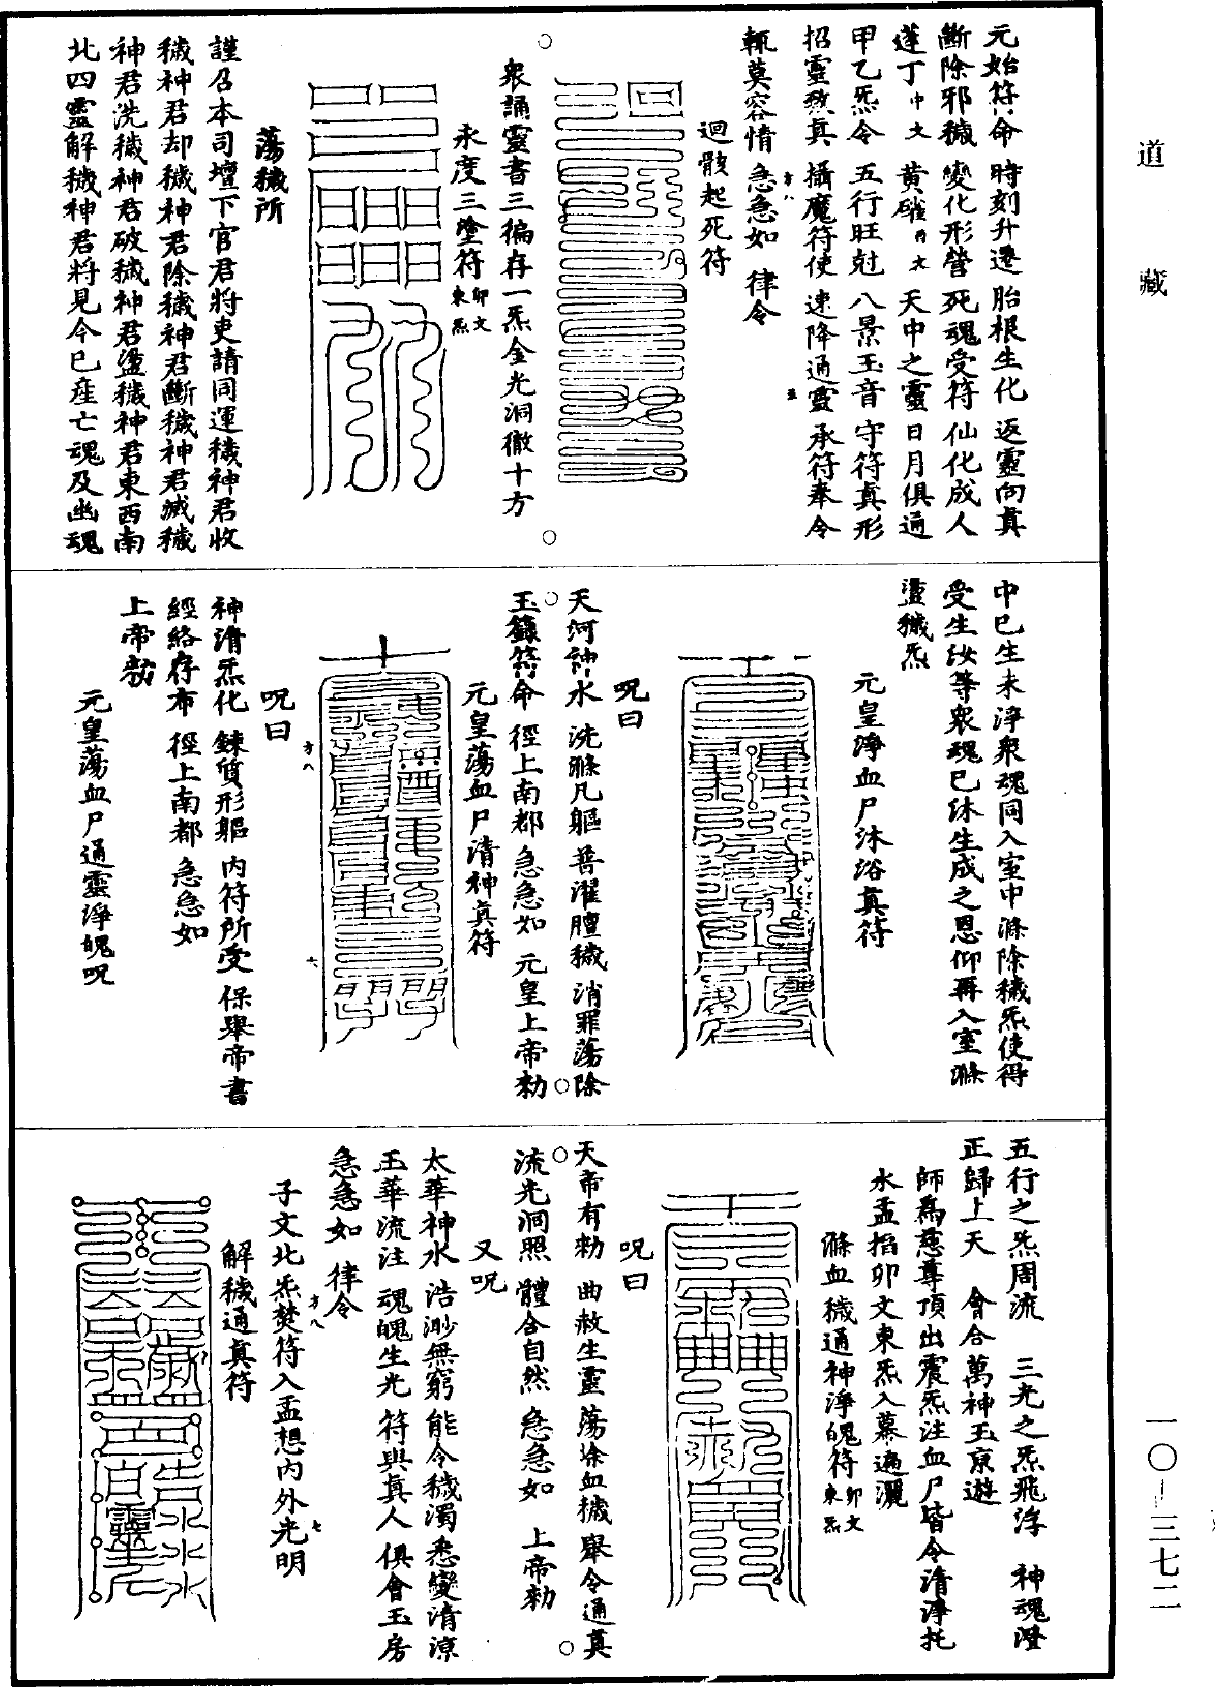 道藏
元始符命　時刻升遷　胎根生化　返靈向真
斷除邪穢　變化形骸　死魂受符　仙化成人
蓬丁中文　黄　天中之靈　日月俱通
甲乙炁令　五行旺尅　八景玉音　守符真形
招靈致真　攝魔符使　速降通靈　承符奉令
輒莫容情　急急如　律令
迴骸起死符
衆誦靈書三徧存一炁金光洞徹十方
永度三塗符卯文東炁
蕩穢所
謹召本司壇下官君將吏請同運穢神君收
穢神君却穢神君除穢神君斷穢神君滅穢
神君洗穢神君破穢神君盪穢神君東西南
北四靈解穢神君將見今已產亡魂及幽魂
中已生未淨衆魂同入室中滌除穢炁使得
受生汝等衆魂已沐生成之恩仰再入室滌
盪穢炁
元皇淨血尸沐浴真符
呪曰
天河神水　洗滌凡軀　普濯膻穢　消罪蕩除
玉籙符命　徑上南都　急急如　元皇上帝勑
元皇蕩血尸清神真符
呪曰
神清炁化　鍊質形軀　内符所受　保舉帝書
經絡存布　徑上南都　急急如
上帝勑
元皇蕩血尸通靈淨魄呪
五行之炁周流　三光之炁飛浮　神魂澄
正歸上天　會合萬神玉京遊
師為慈尊頂出震炁注血尸皆令清淨托
水盂搯卯文東炁入幕遍灑
滌血穢通神淨魄符卯文東炁
呪曰
天帝有勑　曲赦生靈　蕩除血穢　舉令通真
流光洞照　體合自然　急急如　上帝勑
又呪
太華神水　浩渺無窮　能令穢濁　悉變清涼
玉華流注　魂魄生光　符與真人　俱會玉房
急急如　律令
子文北炁焚符入盂想内外光明
解穢通真符
一〇—三七二